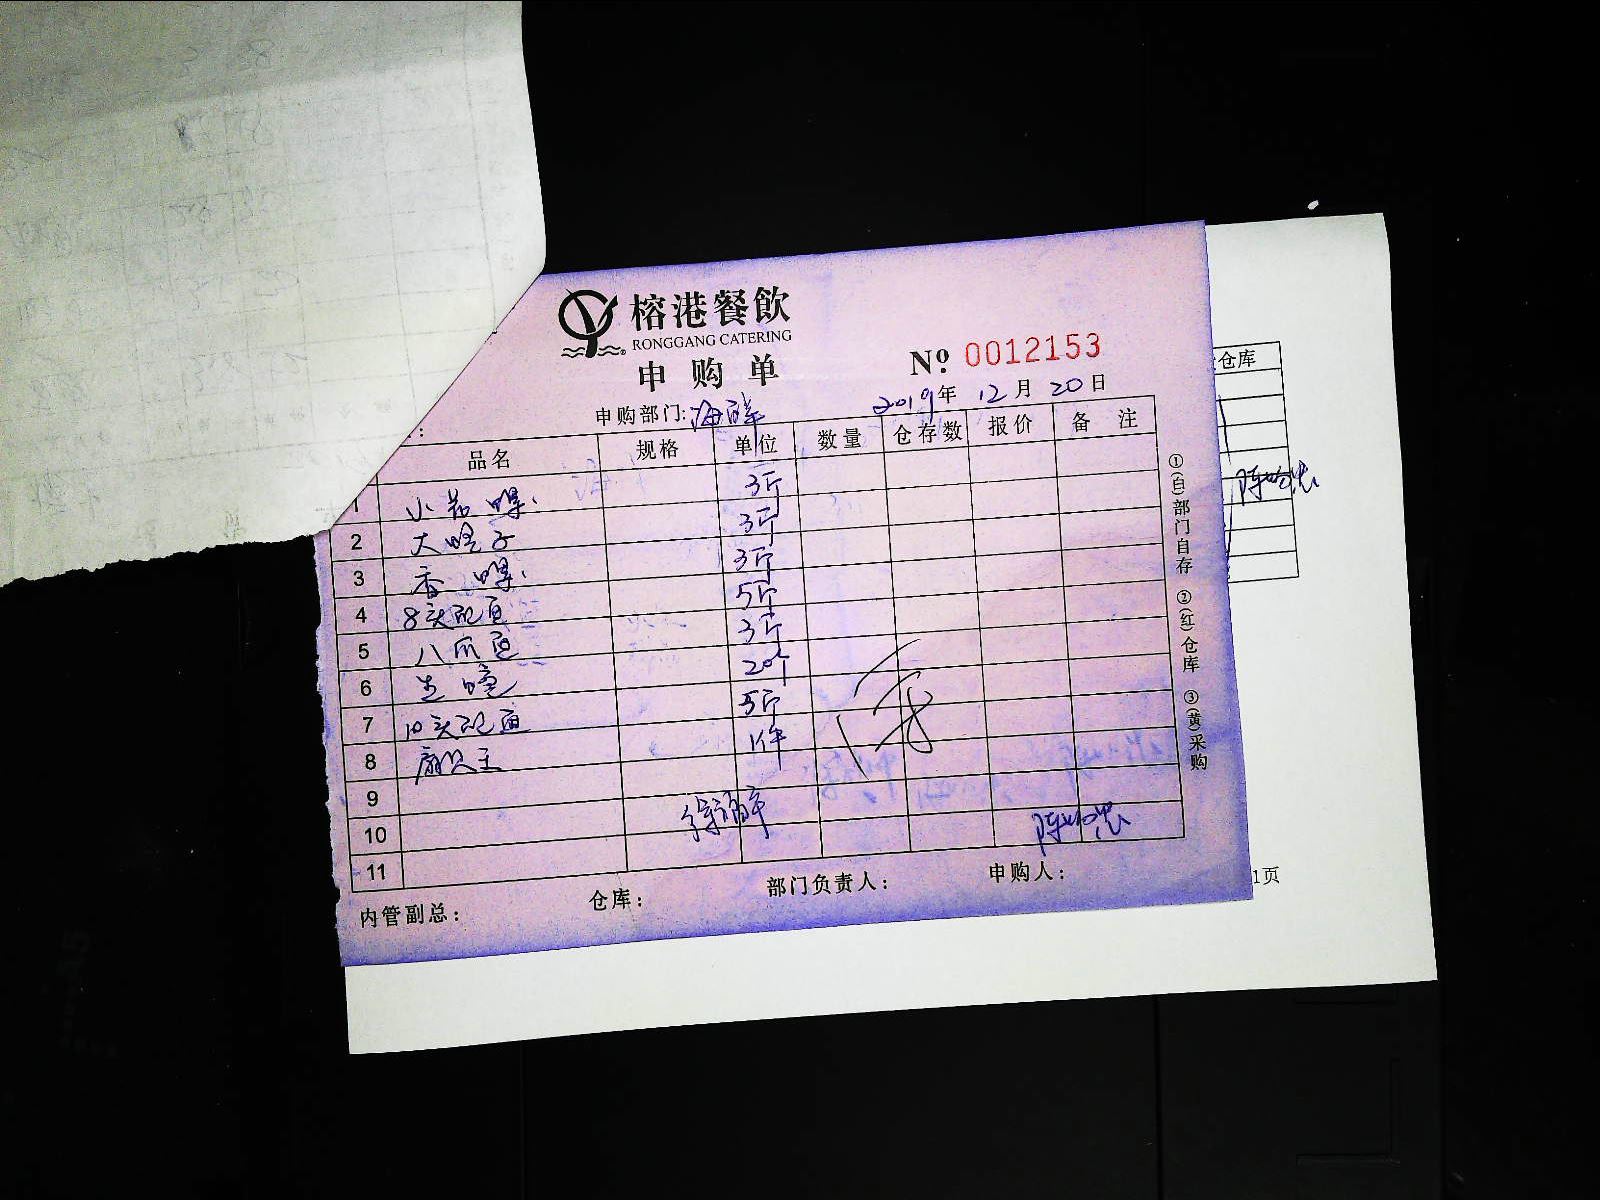 榕港餐飲
RONGGANG CATERING
申购单
№ 0012153
申购部门:海鲜
2019年 12月 20日
品名 规格 单位 数量 仓存数 报价 备注
1 小花螺 3斤
2 大蛏子 3斤
3 香螺 3斤
4 8头鲍鱼 5斤
5 八爪鱼 3斤
6 生蚝 20个
7 10头鲍鱼 5斤
8 扇贝王 1件
9
10
11
内管副总: 仓库: 部门负责人: 申购人:
①(白)部门自存 ②(红)仓库 ③(黄)采购
仓库
1页